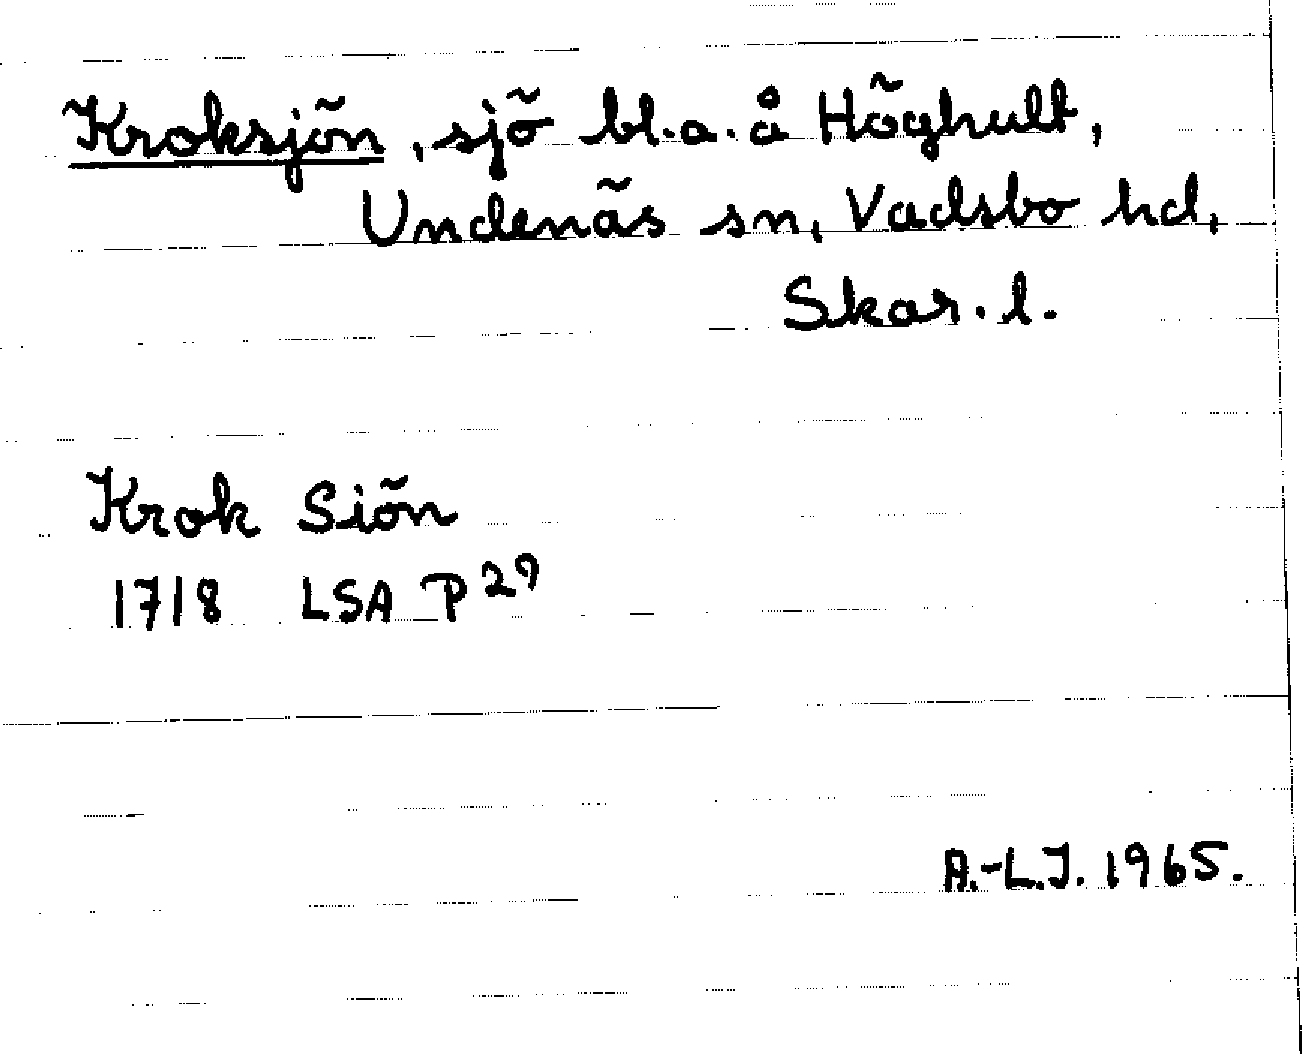 Kroksjön, sjö bl.a. å Höghult,
Undenäs sn, Vadsbo hd,
Skar. l.
Krok Siön
1718 LSA P 29
A.-L.J. 1965.